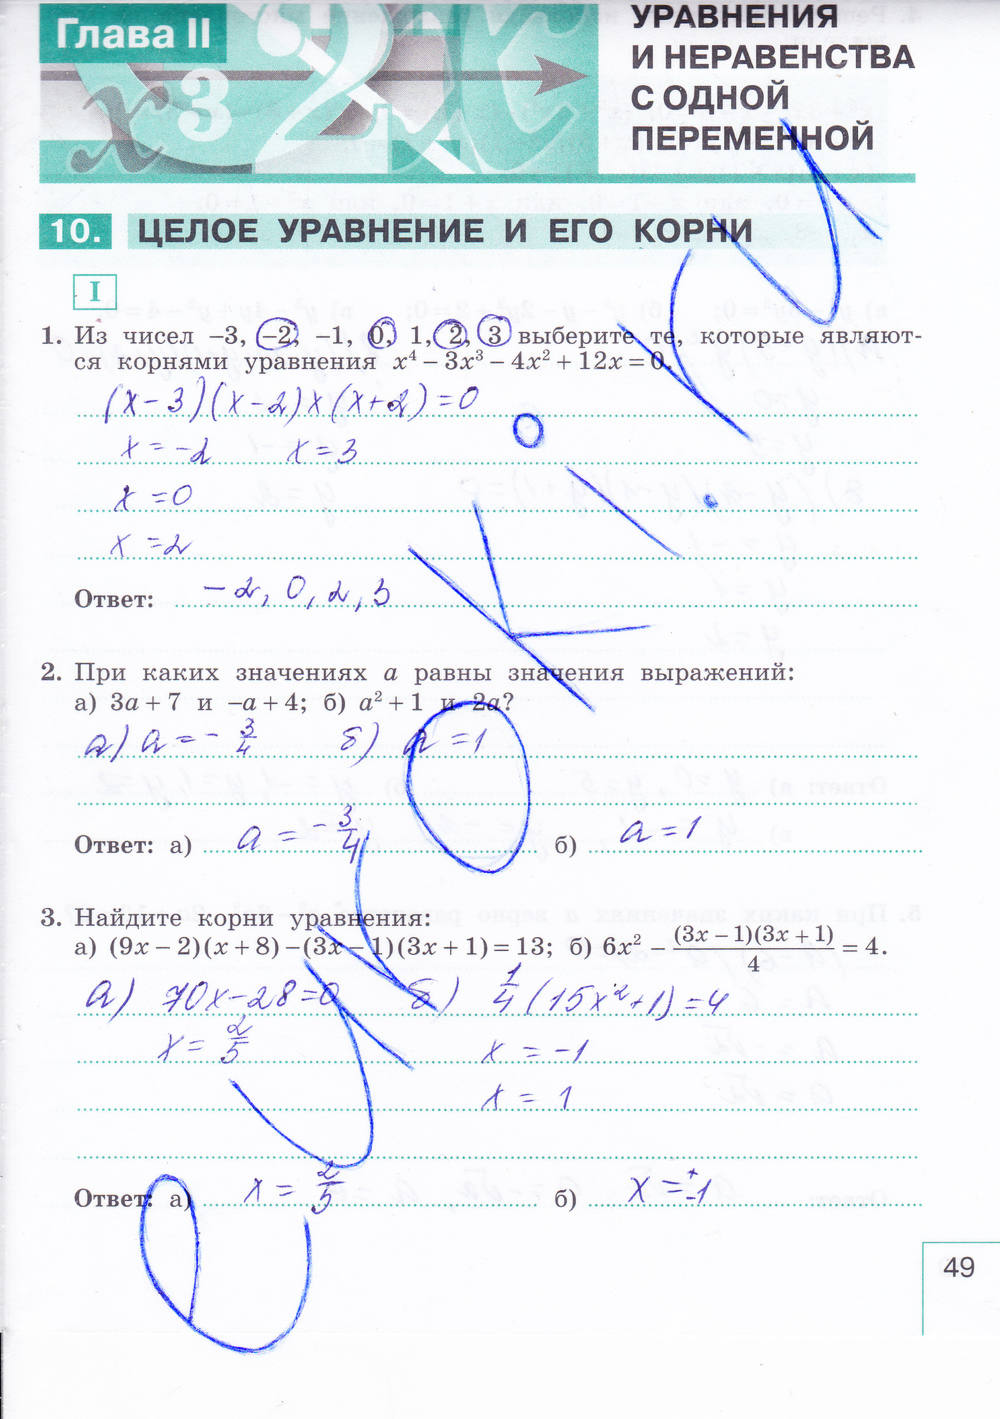 Глава II
УРАВНЕНИЯ
И НЕРАВЕНСТВА
С ОДНОЙ
ПЕРЕМЕННОЙ
10. ЦЕЛОЕ УРАВНЕНИЕ И ЕГО КОРНИ
I
1. Из чисел –3, –2, –1, 0, 1, 2, 3 выберите те, которые являют-
ся корнями уравнения x⁴ – 3x³ – 4x² + 12x = 0.
(x – 3)(x – 2)x(x + 2) = 0
x = –2 x = 3
x = 0
x = 2
Ответ: –2, 0, 2, 3
2. При каких значениях a равны значения выражений:
а) 3a + 7 и –a + 4; б) a² + 1 и 2a?
а) a = – 3/4 б) a = 1
Ответ: а) a = – 3/4 б) a = 1
3. Найдите корни уравнения:
а) (9x – 2)(x + 8) – (3x – 1)(3x + 1) = 13; б) 6x² – (3x – 1)(3x + 1)/4 = 4.
а) 70x – 28 = 0 б) 1/4 (15x² + 1) = 4
x = 2/5 x = –1
x = 1
Ответ: а) x = 2/5 б) x = ±1
49
eurokі.ru